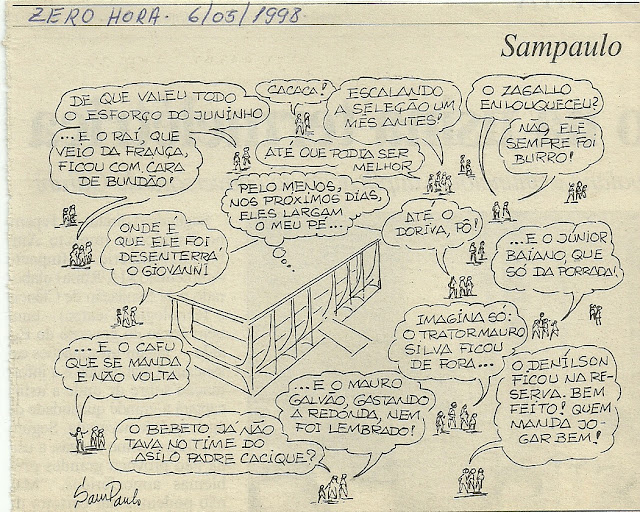 ZERO HORA. 6/05/1998
Sampaulo
DE QUE VALEU TODO
O ESFORÇO DO JUNINHO
CACACA!
ESCALANDO
A SELEÇÃO UM
MÊS ANTES!
O ZAGALLO
ENLOUQUECEU?
NÃO, ELE
SEMPRE FOI
BURRO!
...E O RAÍ, QUE
VEIO DA FRANÇA,
FICOU COM CARA
DE BUNDÃO!
ATÉ QUE PODIA SER
MELHOR
PELO MENOS,
NOS PRÓXIMOS DIAS,
ELES LARGAM
O MEU PÉ...
ATÉ O
DORIVA, PÔ!
ONDE É
QUE ELE FOI
DESENTERRÁ
O GIOVANNI
...E O JÚNIOR
BAIANO, QUE
SÓ DA PORRADA!
IMAGINA SÓ:
O TRATOR MAURO
SILVA FICOU
DE FORA...
...E O CAFU
QUE SE MANDA
E NÃO VOLTA
...E O MAURO
GALVÃO, GASTANDO
A REDONDA, NEM
FOI LEMBRADO!
O DENÍLSON
FICOU NA RE-
SERVA. BEM
FEITO! QUEM
MANDA JO-
GAR BEM!
O BEBETO JÁ NÃO
TAVA NO TIME DO
ASILO PADRE CACIQUE?
SamPaulo